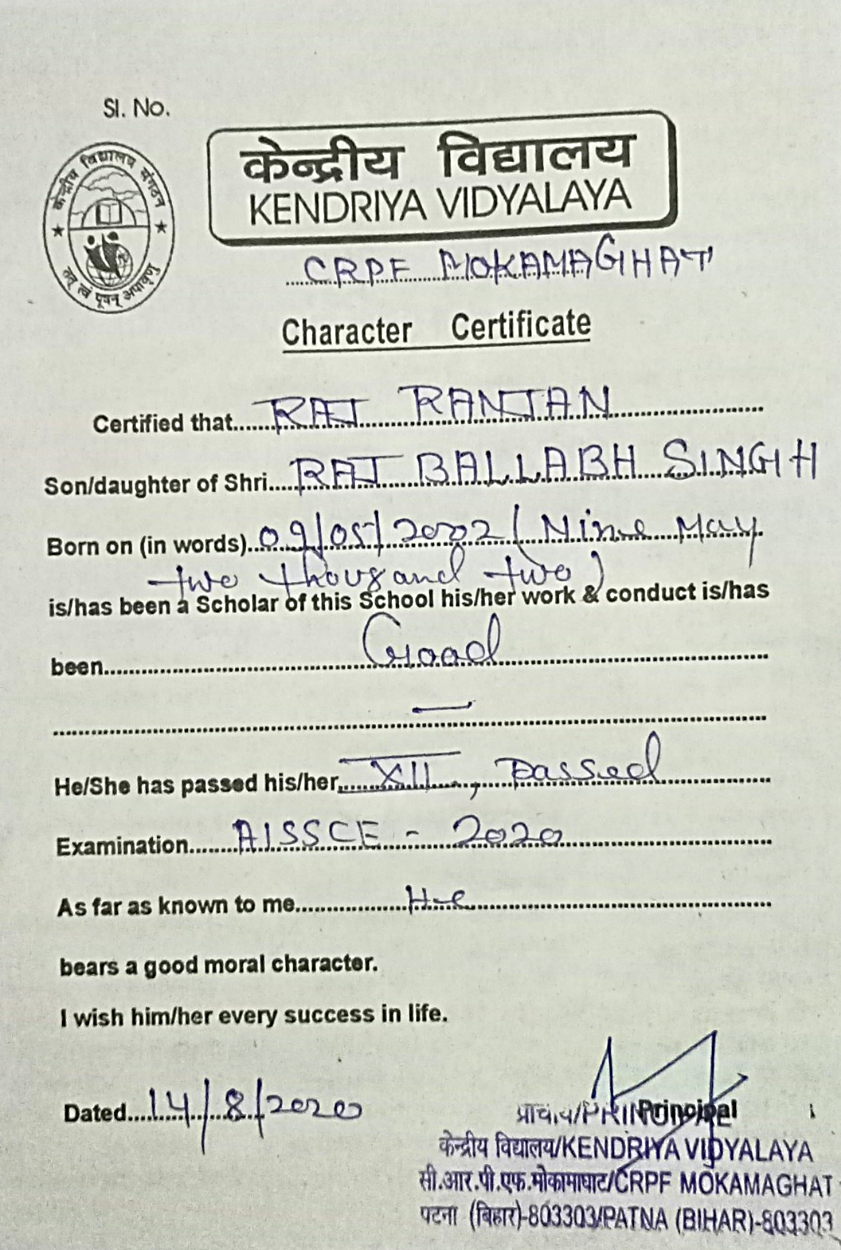 Sl. No.
केन्द्रीय विद्यालय संगठन
तत् त्वं पूषन् अपावृणु
केन्द्रीय विद्यालय
KENDRIYA VIDYALAYA
CRPF MOKAMAGHAT
Character Certificate
Certified that RAJ RANJAN
Son/daughter of Shri RAJ BALLABH SINGH
Born on (in words) 09/05/2002 (Nine May
two thousand two)
is/has been a Scholar of this School his/her work & conduct is/has
been Good
—
He/She has passed his/her XII, passed
Examination AISSCE - 2020
As far as known to me He
bears a good moral character.
I wish him/her every success in life.
Dated 14/8/2020
Principal
प्राचार्य/PRINCIPAL
केन्द्रीय विद्यालय/KENDRIYA VIDYALAYA
सी.आर.पी.एफ.मोकामाघाट/CRPF MOKAMAGHAT
पटना (बिहार)-803303/PATNA (BIHAR)-803303